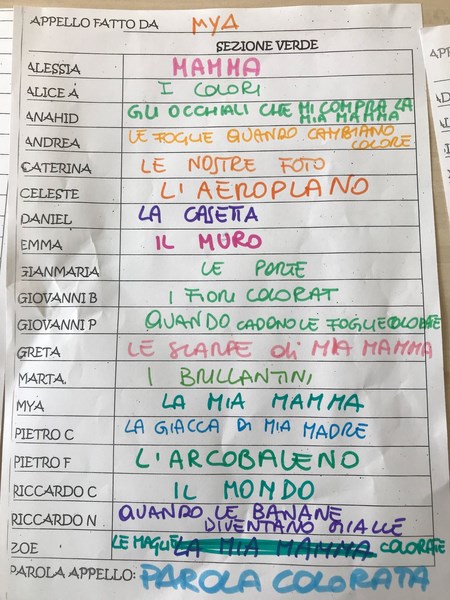 APPELLO FATTO DA MYA
SEZIONE VERDE
ALESSIA MAMMA
ALICE A I COLORI
ANAHID GLI OCCHIALI CHE MI COMPRA LA
MIA MAMMA
ANDREA LE FOGLIE QUANDO CAMBIANO
COLORE
CATERINA LE NOSTRE FOTO
CELESTE L'AEROPLANO
DANIEL LA CASETTA
EMMA IL MURO
GIANMARIA LE PORTE
GIOVANNI B I FIORI COLORAT
GIOVANNI P QUANDO CADONO LE FOGLIE COLORATE
GRETA LE SCARPE di MIA MAMMA
MARTA. I BRILLANTINI
MYA LA MIA MAMMA
PIETRO C LA GIACCA DI MIA MADRE
PIETRO F L'ARCOBALENO
RICCARDO C IL MONDO
RICCARDO N QUANDO LE BANANE
DIVENTANO GIALLE
ZOE LE MAGLIE LA MIA MAMMA COLORATE
PAROLA APPELLO: PAROLA COLORATA